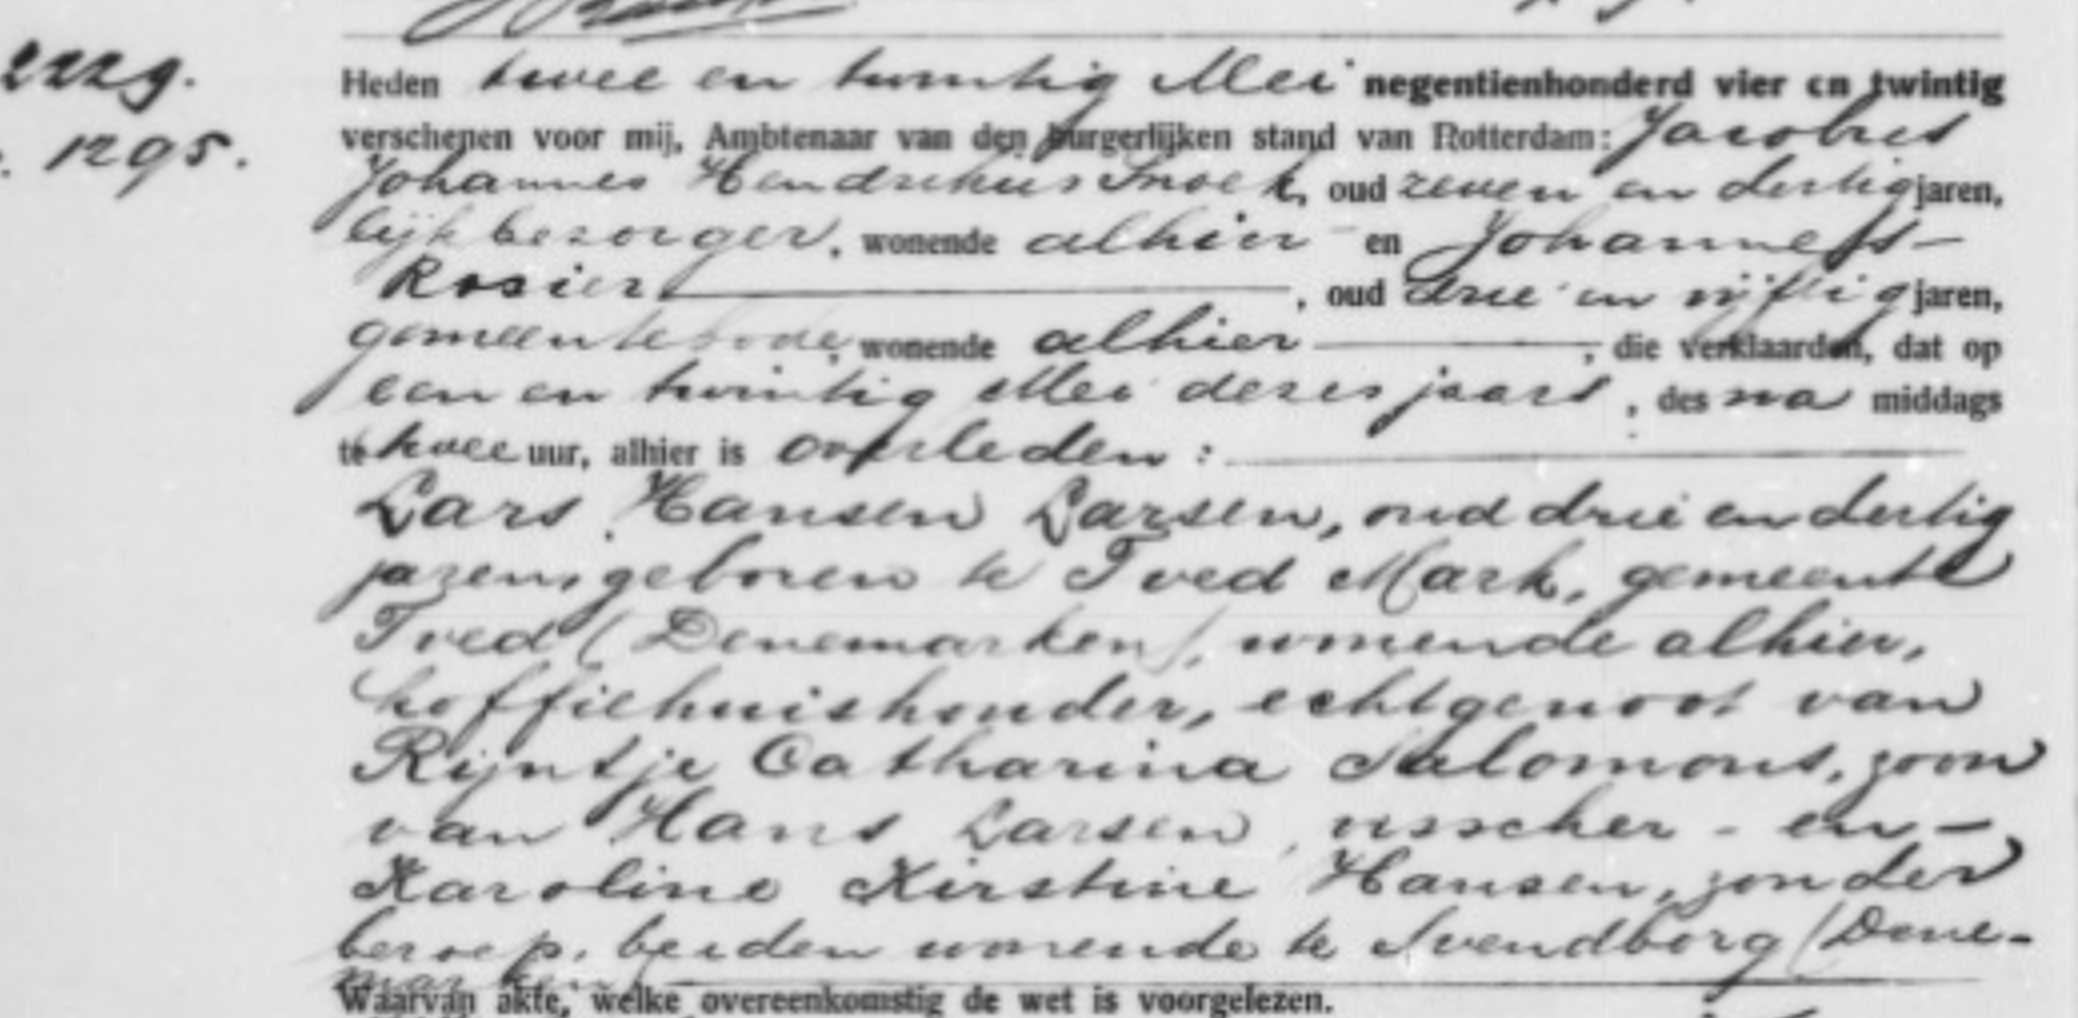 2229.
1295.
Heden twee en twintig Mei negentienhonderd vier en twintig
verschenen voor mij, Ambtenaar van den burgerlijken stand van Rotterdam: Jacobus
Johannes Hendrikus Snoek, oud zeven en dertig jaren,
lijkbezorger, wonende alhier en Johannes
Rosier, oud drie en vijftig jaren,
gemeentebode, wonende alhier, die verklaarden, dat op
een en twintig Mei dezes jaars, des na middags
te twee uur, alhier is overleden:
Lars Hansen Larsen, oud drie en dertig
jaren, geboren te Tved Mark, gemeente
Tved (Denemarken), wonende alhier,
koffiehuishouder, echtgenoot van
Rijntje Catharina Salomons, zoon
van Hans Larsen, visscher - en -
Karoline Kirstine Hansen, zonder
beroep, beiden wonende te Svendborg (Dene-
marken).
Waarvan akte, welke overeenkomstig de wet is voorgelezen.